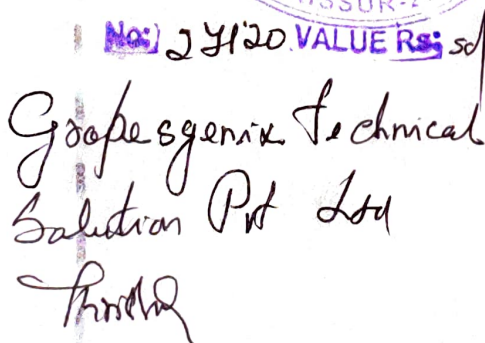 SSUR-2
No: 27120 VALUE Rs: 50
Grapesgenix Technical
Solution Pvt Ltd